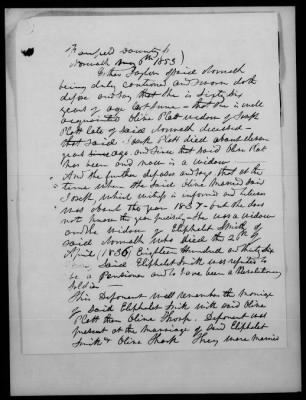 Fairfield County ss
Norwalk May 6th 1853)
Esther Taylor of said Norwalk
being duly cautioned and sworn doth
depose and say that she is Sixty six
years of age last June - that she is well
acquainted Olive Platt widow of Isaac
Platt late of said Norwalk deceased -
that said Isaac Platt died about eleven
years since and since that said Olive Platt
has been and now is a widow
And she further deposes and says that at the
time when the said Olive married said
Isaac, which as she is informed and believes
was about the year 1837 - but she does
not know the year precisely - she was a widow
and the widow of Eliphalet Smith of
said Norwalk who died the 28th of
April (1836) Eighteen Hundred and thirty six
Said Eliphalet Smith was reputed to
be a Pensioner and to have been a Revolutionary
Soldier -
This Deponent well remembers the marriage
of said Eliphalet Smith with said Olive
Platt then Olive Thorp. Deponent was
present at the marriage of said Eliphalet
Smith & Olive Thorp They were married